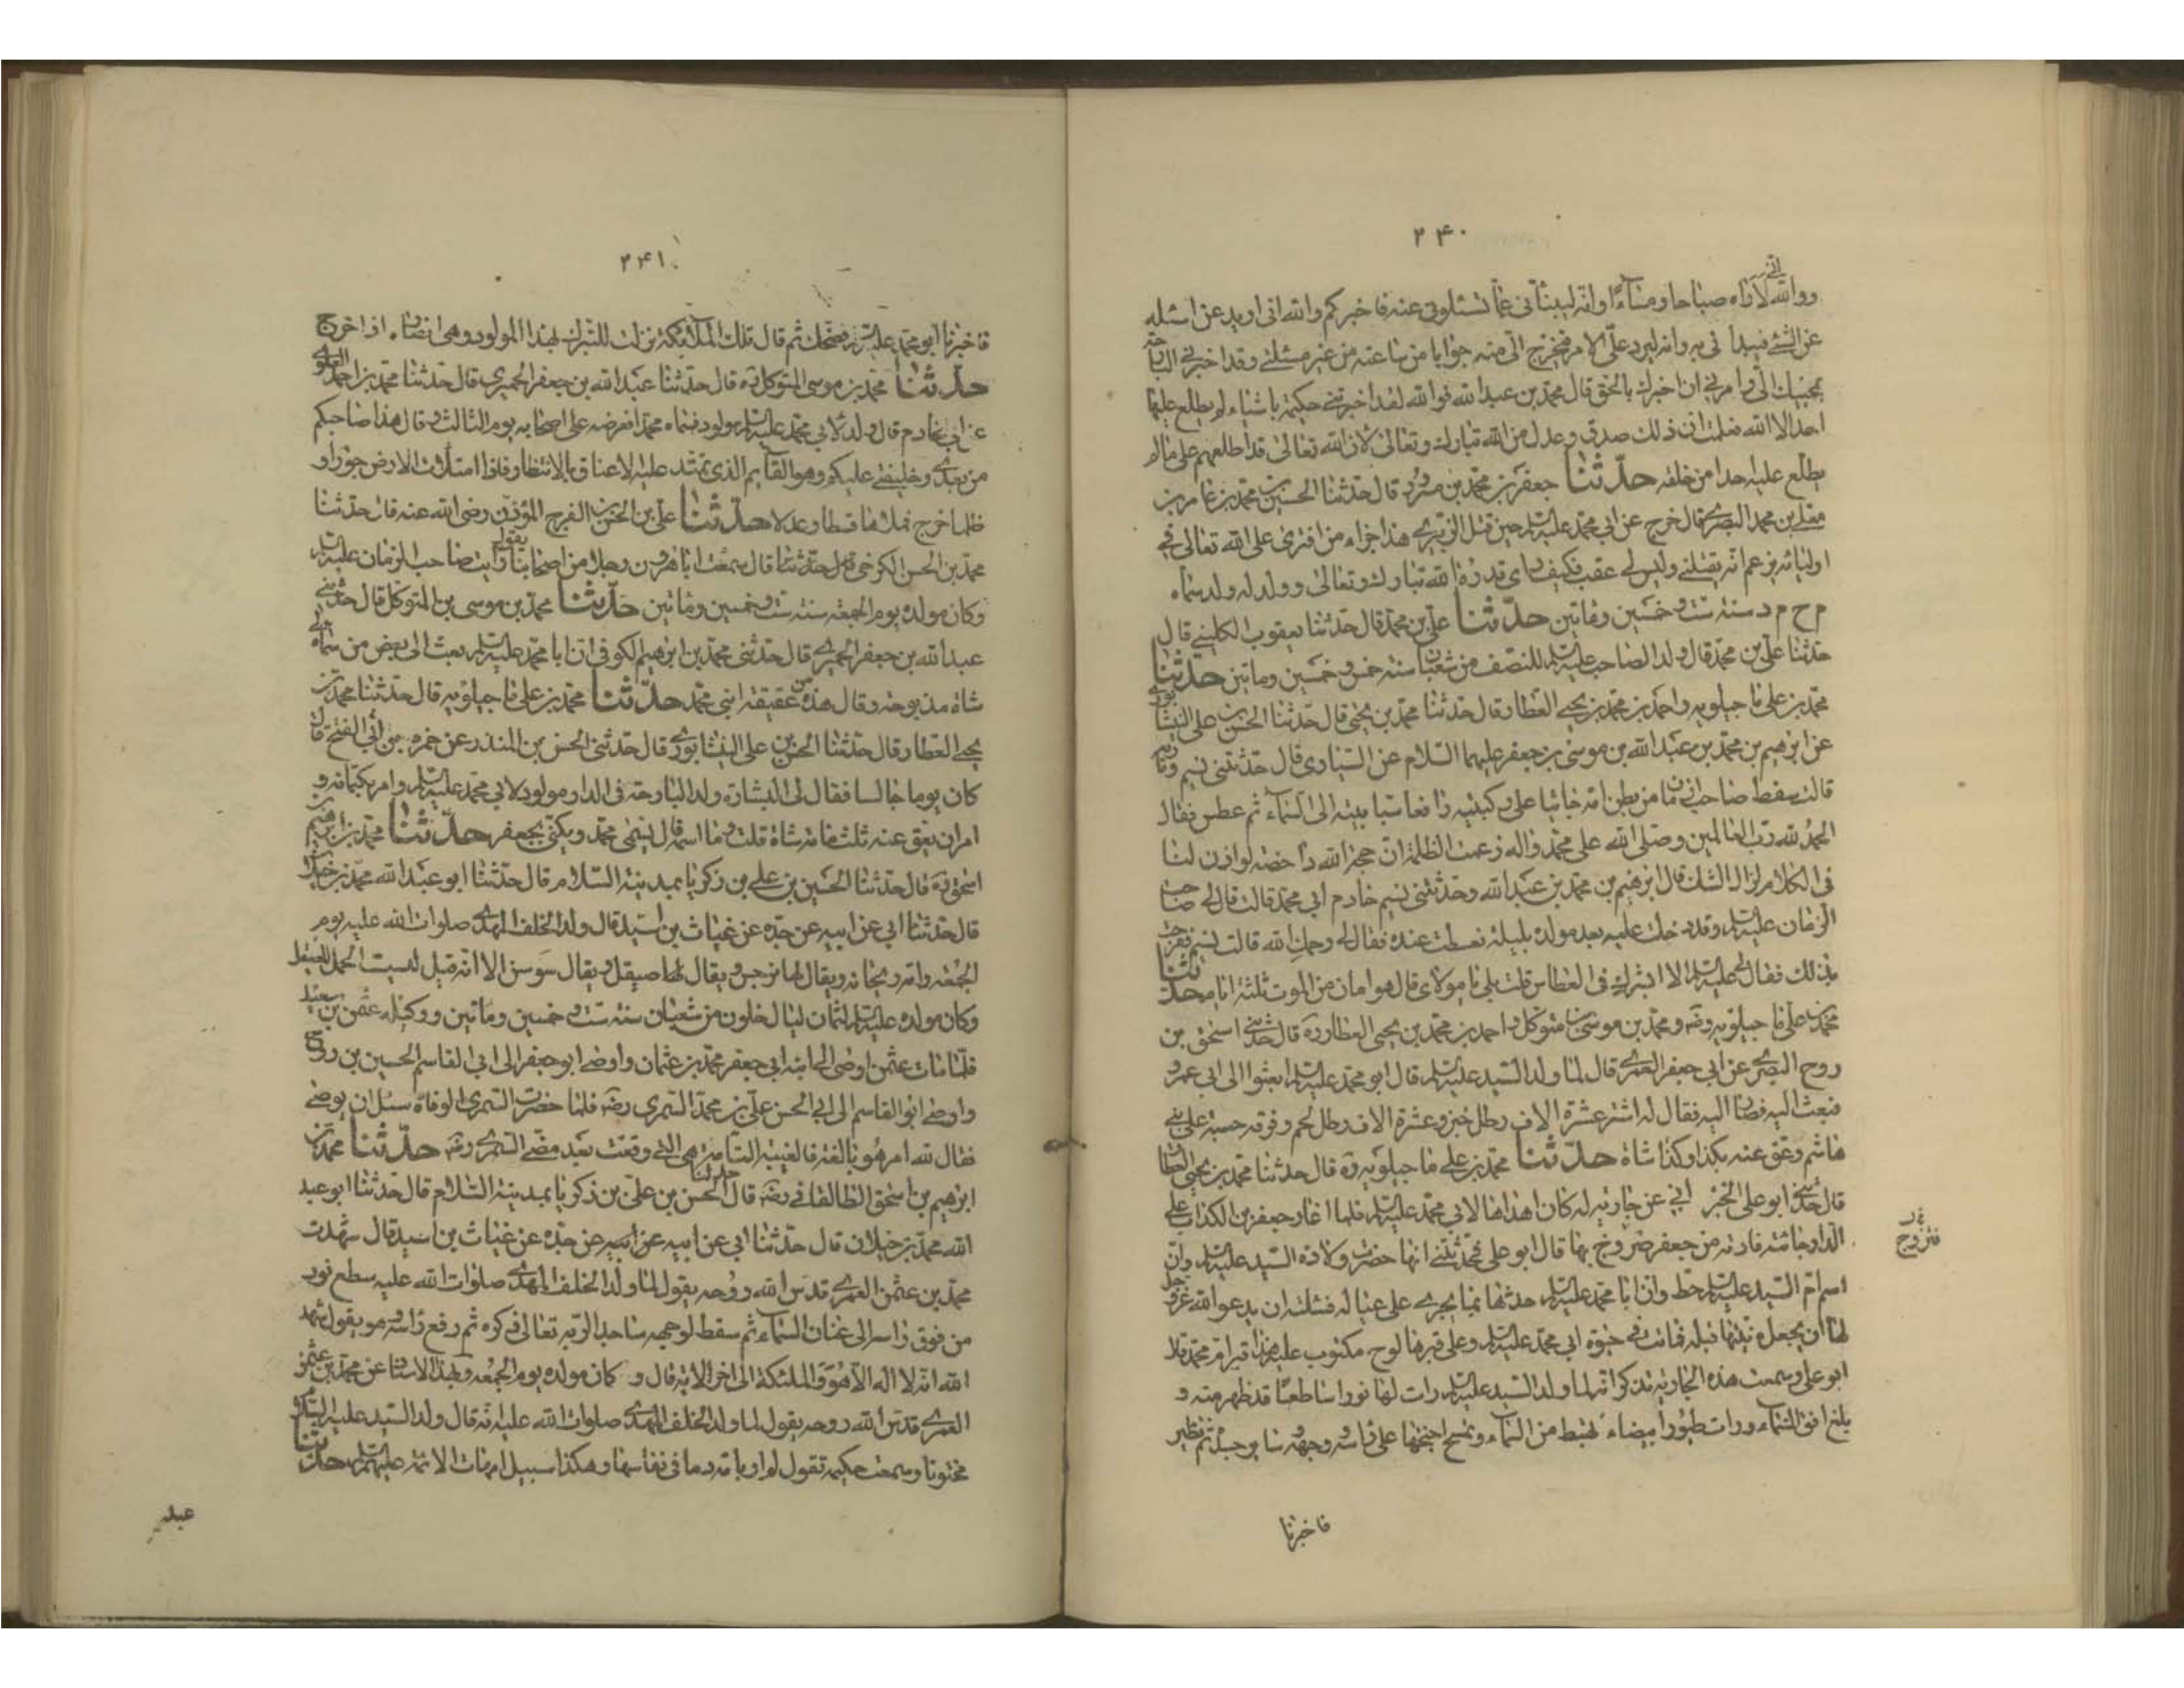 ۲۴۰
اني
ووالله لاراه صباحا ومساءً وانه لينبئاني عما تسئلوني عنه فاخبركم ووالله اني اريد عن اسئله
عن الشئ فيبدأني به وانه ليرد علي الامر فيخرج الي منه جوابا من ساعته من غير مسئلتي وقد اخبرني البارحة
بمجيئك الي وامرني ان اخبرك بالحق قال محمد بن عبد الله فوالله لقد اخبرتني حكيمة باشياء لم يطلع عليها
احد الا الله فعلمت ان ذلك صدق وعدل من الله تبارك وتعالى لان الله تعالى قد اطلعهم على مالم
يطلع عليه احدا من خلقه حدثنا جعفر بن محمد بن مسرور قال حدثنا الحسين بن محمد بن عامر بن
معلى بن محمد البصري قال خرج عن ابي محمد عليه السلام حين قتل الزبيري هذا جزاء من افترى على الله تعالى في
اوليائه يزعم انه يقتلني وليس لي عقب فكيف راى قدرة الله تبارك وتعالى وولد له ولد سماه
م ح م د سنة ست وخمسين وماتين حدثنا علي بن محمد قال حدثنا يعقوب الكليني قال
حدثنا علي بن محمد قال ولد الصاحب عليه السلام للنصف من شعبان سنة خمس وخمسين وماتين حدثنا
محمد بن علي ماجيلويه واحمد بن محمد بن يحيى العطار قال حدثنا محمد بن يحيى قال حدثنا الحسين بن علي النيشابوري
عن ابرهيم بن محمد بن عبد الله بن موسى بن جعفر عليهما السلام عن السياري قال حدثتني نسيم ومارية
قالت سقط صاحب الزمان من بطن امه جاثيا على ركبتيه رافعا سبابتيه الى السماء ثم عطس فقال
الحمد لله رب العالمين وصلى الله على محمد واله زعمت الظلمة ان حجة الله داحضة لو اذن لنا
في الكلام لزال الشك قال ابرهيم بن محمد بن عبد الله وحدثتني نسيم خادم ابي محمد قالت قال لي صاحب
الزمان عليه السلام وقد دخلت عليه بعد مولده بليلة فعطست عنده فقال لي يرحمك الله قالت نسيم ففرحت
بذلك فقال لي عليه السلام الا ابشرك في العطاس قلت بلى يا مولاي قال هو امان من الموت ثلثة ايام حدثنا
محمد بن علي ماجيلويه رضه ومحمد بن موسى بن متوكل واحمد بن محمد بن يحيى العطار ره قال حدثني اسحق بن
روح البصري عن ابي جعفر العمري قال لما ولد السيد عليه السلام قال ابو محمد عليه السلام ابعثوا الى ابي عمرو
فبعث اليه فصار اليه فقال له اشتر عشرة الاف رطل خبز وعشرة الاف رطل لحم وفرقه حسبة على بني
هاشم وعق عنه بكذا وكذا شاة حدثنا محمد بن علي ماجيلويه ره قال حدثنا محمد بن يحيى العطار
قال حدثني ابو علي الخيزراني عن جارية له كان اهداها لابي محمد عليه السلام فلما اغار جعفر بن الكذاب على
الدار جائته فارة من جعفر فتزوج بها قال ابو علي فحدثتني انها حضرت ولادة السيد عليه السلام وان
اسم ام السيد عليه السلام حط وان ابا محمد عليه السلام حدثها بما يجري على عياله فسئلته ان يدعو الله عزوجل
لها ان يجعل منيتها قبله فماتت في حيوة ابي محمد عليه السلام وعلى قبرها لوح مكتوب عليه هذا قبر ام محمد قال
ابو علي وسمعت هذه الجارية تذكر انه لما ولد السيد عليه السلام رات لها نورا ساطعا قد ظهر منه و
بلغ افق السماء ورات طيورا بيضاء تهبط من السماء وتمسح اجنحتها على راسه ووجهه وساير جسده ثم تطير
فتزوج
فاخبرنا
۲۴۱
فاخبرنا ابو محمد عليه السلام بذلك فضحك ثم قال تلك الملائكة نزلت للتبرك بهذا المولود وهي انصاره اذا خرج
حدثنا محمد بن موسى المتوكل ره قال حدثنا عبد الله بن جعفر الحميري قال حدثنا محمد بن احمد العلوي
عن ابي غانم الخادم قال ولد لابي محمد عليه السلام مولود فسماه محمدا فعرضه على اصحابه يوم الثالث وقال هذا صاحبكم
من بعدي وخليفتي عليكم وهو القايم الذي تمتد عليه الاعناق بالانتظار فاذا امتلأت الارض جورا و
ظلما خرج فملاها قسطا وعدلا حدثنا علي بن الحسن بن الفرج المؤذن رضي الله عنه قال حدثنا
محمد بن الحسن الكرخي قال حدثنا قال سمعت ابا هرون رجلا من اصحابنا يقول رايت صاحب الزمان عليه السلام
وكان مولده يوم الجمعة سنة ست وخمسين وماتين حدثنا محمد بن موسى بن المتوكل قال حدثني
عبد الله بن جعفر الحميري قال حدثني محمد بن ابرهيم الكوفي ان ابا محمد عليه السلام بعث الى بعض من سماه لي
شاة مذبوحة وقال هذه من عقيقة ابني محمد حدثنا محمد بن علي ماجيلويه قال حدثنا محمد بن
يحيى العطار قال حدثنا الحسن بن علي النيشابوري قال حدثني الحسن بن المنذر عن حمزة بن ابي الفتح قال
كان يوما جالسا فقال لي البشارة ولد البارحة في الدار مولود لابي محمد عليه السلام وامر بكتمانه و
امر ان يعق عنه ثلث مائة شاة قلت وما اسمه قال يسمى محمد ويكنى بجعفر حدثنا محمد بن ابرهيم بن
اسحق ره قال حدثنا الحسين بن علي بن زكريا بمدينة السلام قال حدثنا ابو عبد الله محمد بن خليلان
قال حدثنا ابي عن ابيه عن جده عن غياث بن اسيد قال ولد الخلف المهدي صلوات الله عليه يوم
الجمعة وامه ريحانة ويقال لها نرجس ويقال لها صيقل ويقال سوسن الا انه قيل لسبب الحمل الصيقل
وكان مولده عليه السلام لثمان ليال خلون من شعبان سنة ست وخمسين وماتين ووكيله عثمن بن سعيد
فلما مات عثمن اوصى الى ابنه ابي جعفر محمد بن عثمان واوصى ابو جعفر الى ابي القاسم الحسين بن روح
واوصى ابو القاسم الى ابي الحسن علي بن محمد السمري رضه فلما حضرت السمري الوفاة سئل ان يوصي
فقال لله امر هو بالغه فالغيبة التامة هي التي وقعت بعد مضي السمري رضه حدثنا محمد بن
ابرهيم بن اسحق الطالقاني رضه قال حدثنا الحسن بن علي بن زكريا بمدينة السلام قال حدثنا ابو عبد
الله محمد بن خليلان قال حدثنا ابي عن ابيه عن ابيه عن جده عن غياث بن اسيد قال شهدت
محمد بن عثمن العمري قدس الله روحه يقول لما ولد الخلف المهدي صلوات الله عليه سطع نور
من فوق راسه الى عنان السماء ثم سقط لوجهه ساجدا لربه تعالى ذكره ثم رفع راسه وهو يقول شهد
الله انه لا اله الا هو والملئكة الى اخر الاية قال و كان مولده يوم الجمعة وبهذا الاسناد عن محمد بن عثمن
العمري قدس الله روحه يقول لما ولد الخلف المهدي صلوات الله عليه انه قال ولد السيد عليه السلام
مختونا وسمعت حكيمة تقول لم ار بامه دما في نفاسها وهكذا سبيل امهات الائمة عليهم السلام حدثنا
عبد